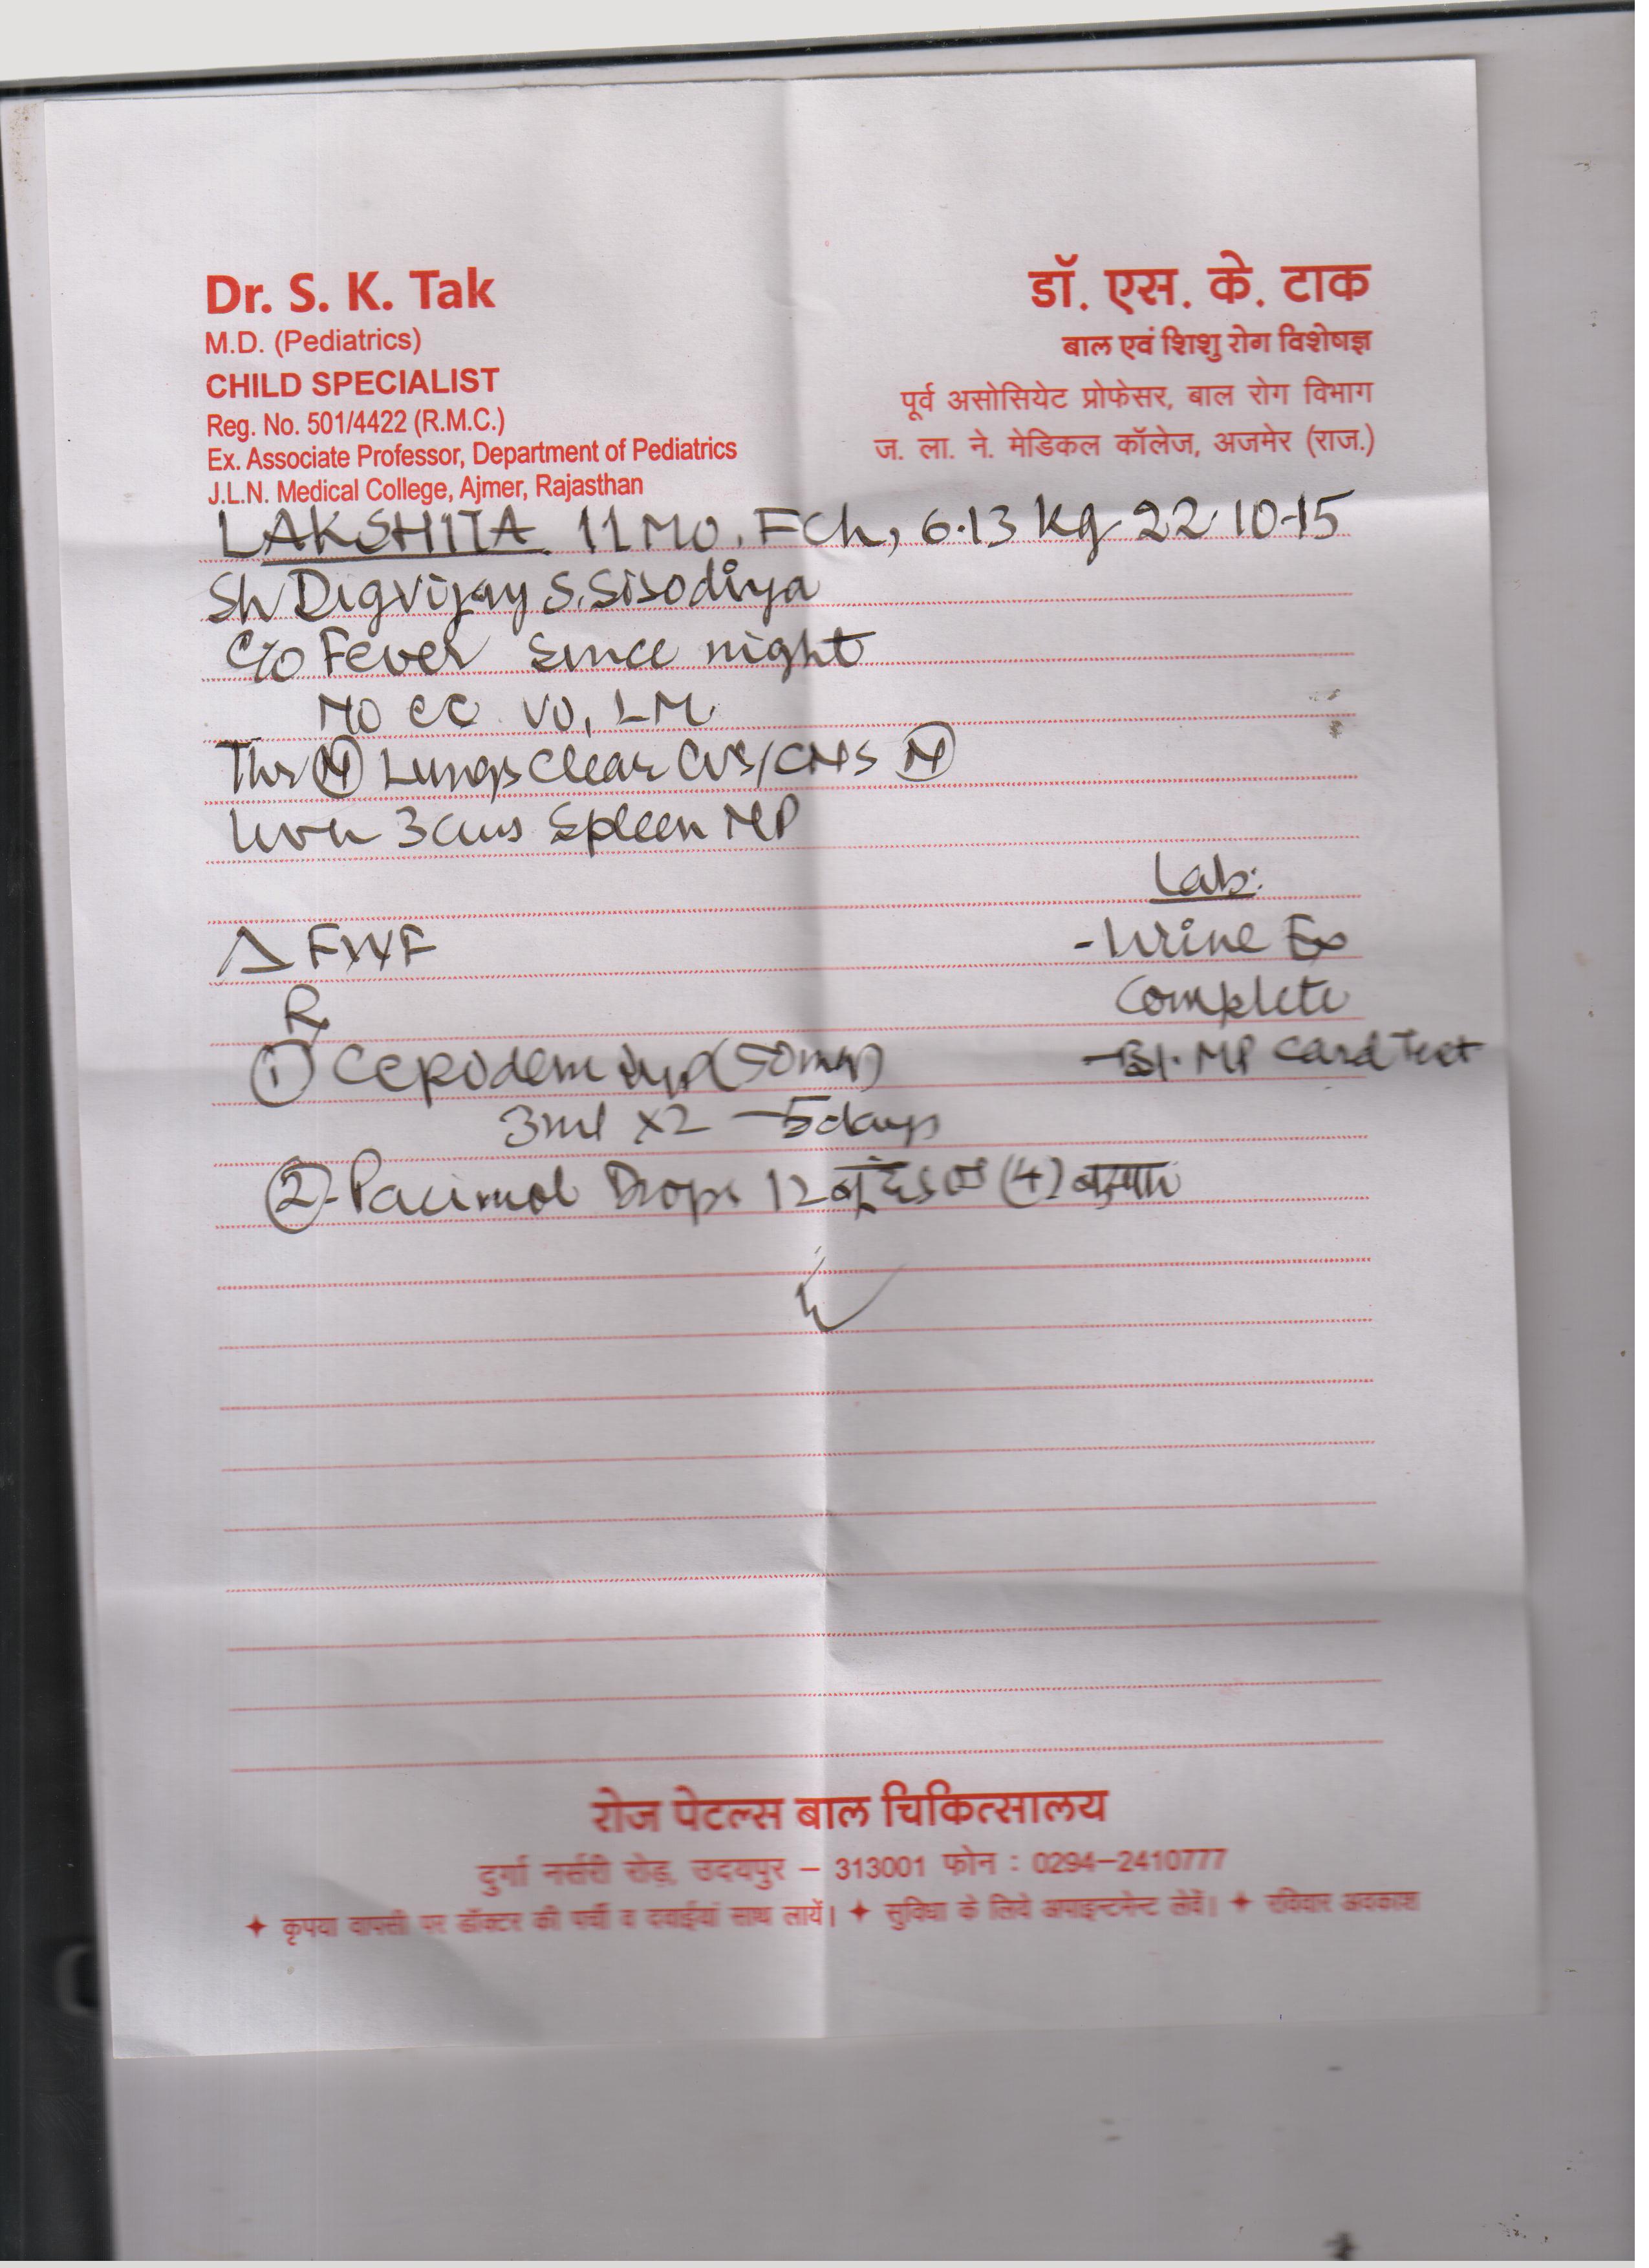 Dr. S. K. Tak
M.D. (Pediatrics)
CHILD SPECIALIST
Reg. No. 501/4422 (R.M.C.)
Ex. Associate Professor, Department of Pediatrics
J.L.N. Medical College, Ajmer, Rajasthan
डॉ. एस. के. टाक
बाल एवं शिशु रोग विशेषज्ञ
पूर्व असोसियेट प्रोफेसर, बाल रोग विभाग
ज. ला. ने. मेडिकल कॉलेज, अजमेर (राज.)
LAKSHITA 11 Mo, FCh, 6.13 Kg 22.10.15
Sh Digvijay S. Sisodiya
C/o Fever Since night
No CC VO, LM
Thr (N) Lungs Clear CVS/CNS (N)
Liver 3cms Spleen NP
Δ FWF
Lab:
- Urine Ex
Complete
- Bl. MP Card Test
Rx
① Cepodem (50mg)
3ml x2 – 5 days
②- Pacimol Drops 12 बूंद (4) बुखार
रोज पेटल्स बाल चिकित्सालय
दुर्गा नर्सरी रोड़, उदयपुर – 313001 फोन : 0294–2410777
✦ कृपया वापसी पर डॉक्टर की पर्ची व दवाईयां साथ लायें। ✦ सुविधा के लिये अपाइन्टमेन्ट लेवें। ✦ रविवार अवकाश